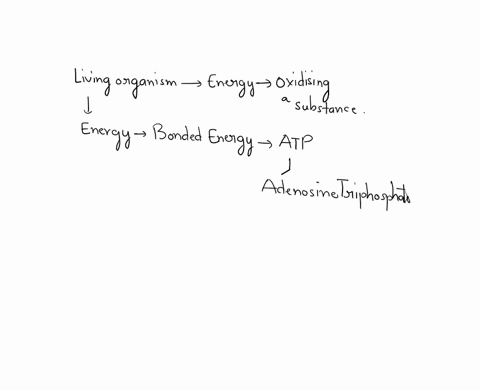 Living organism → Energy → Oxidising
a substance.
↓
Energy → Bonded Energy → ATP
Adenosine Triphosphate